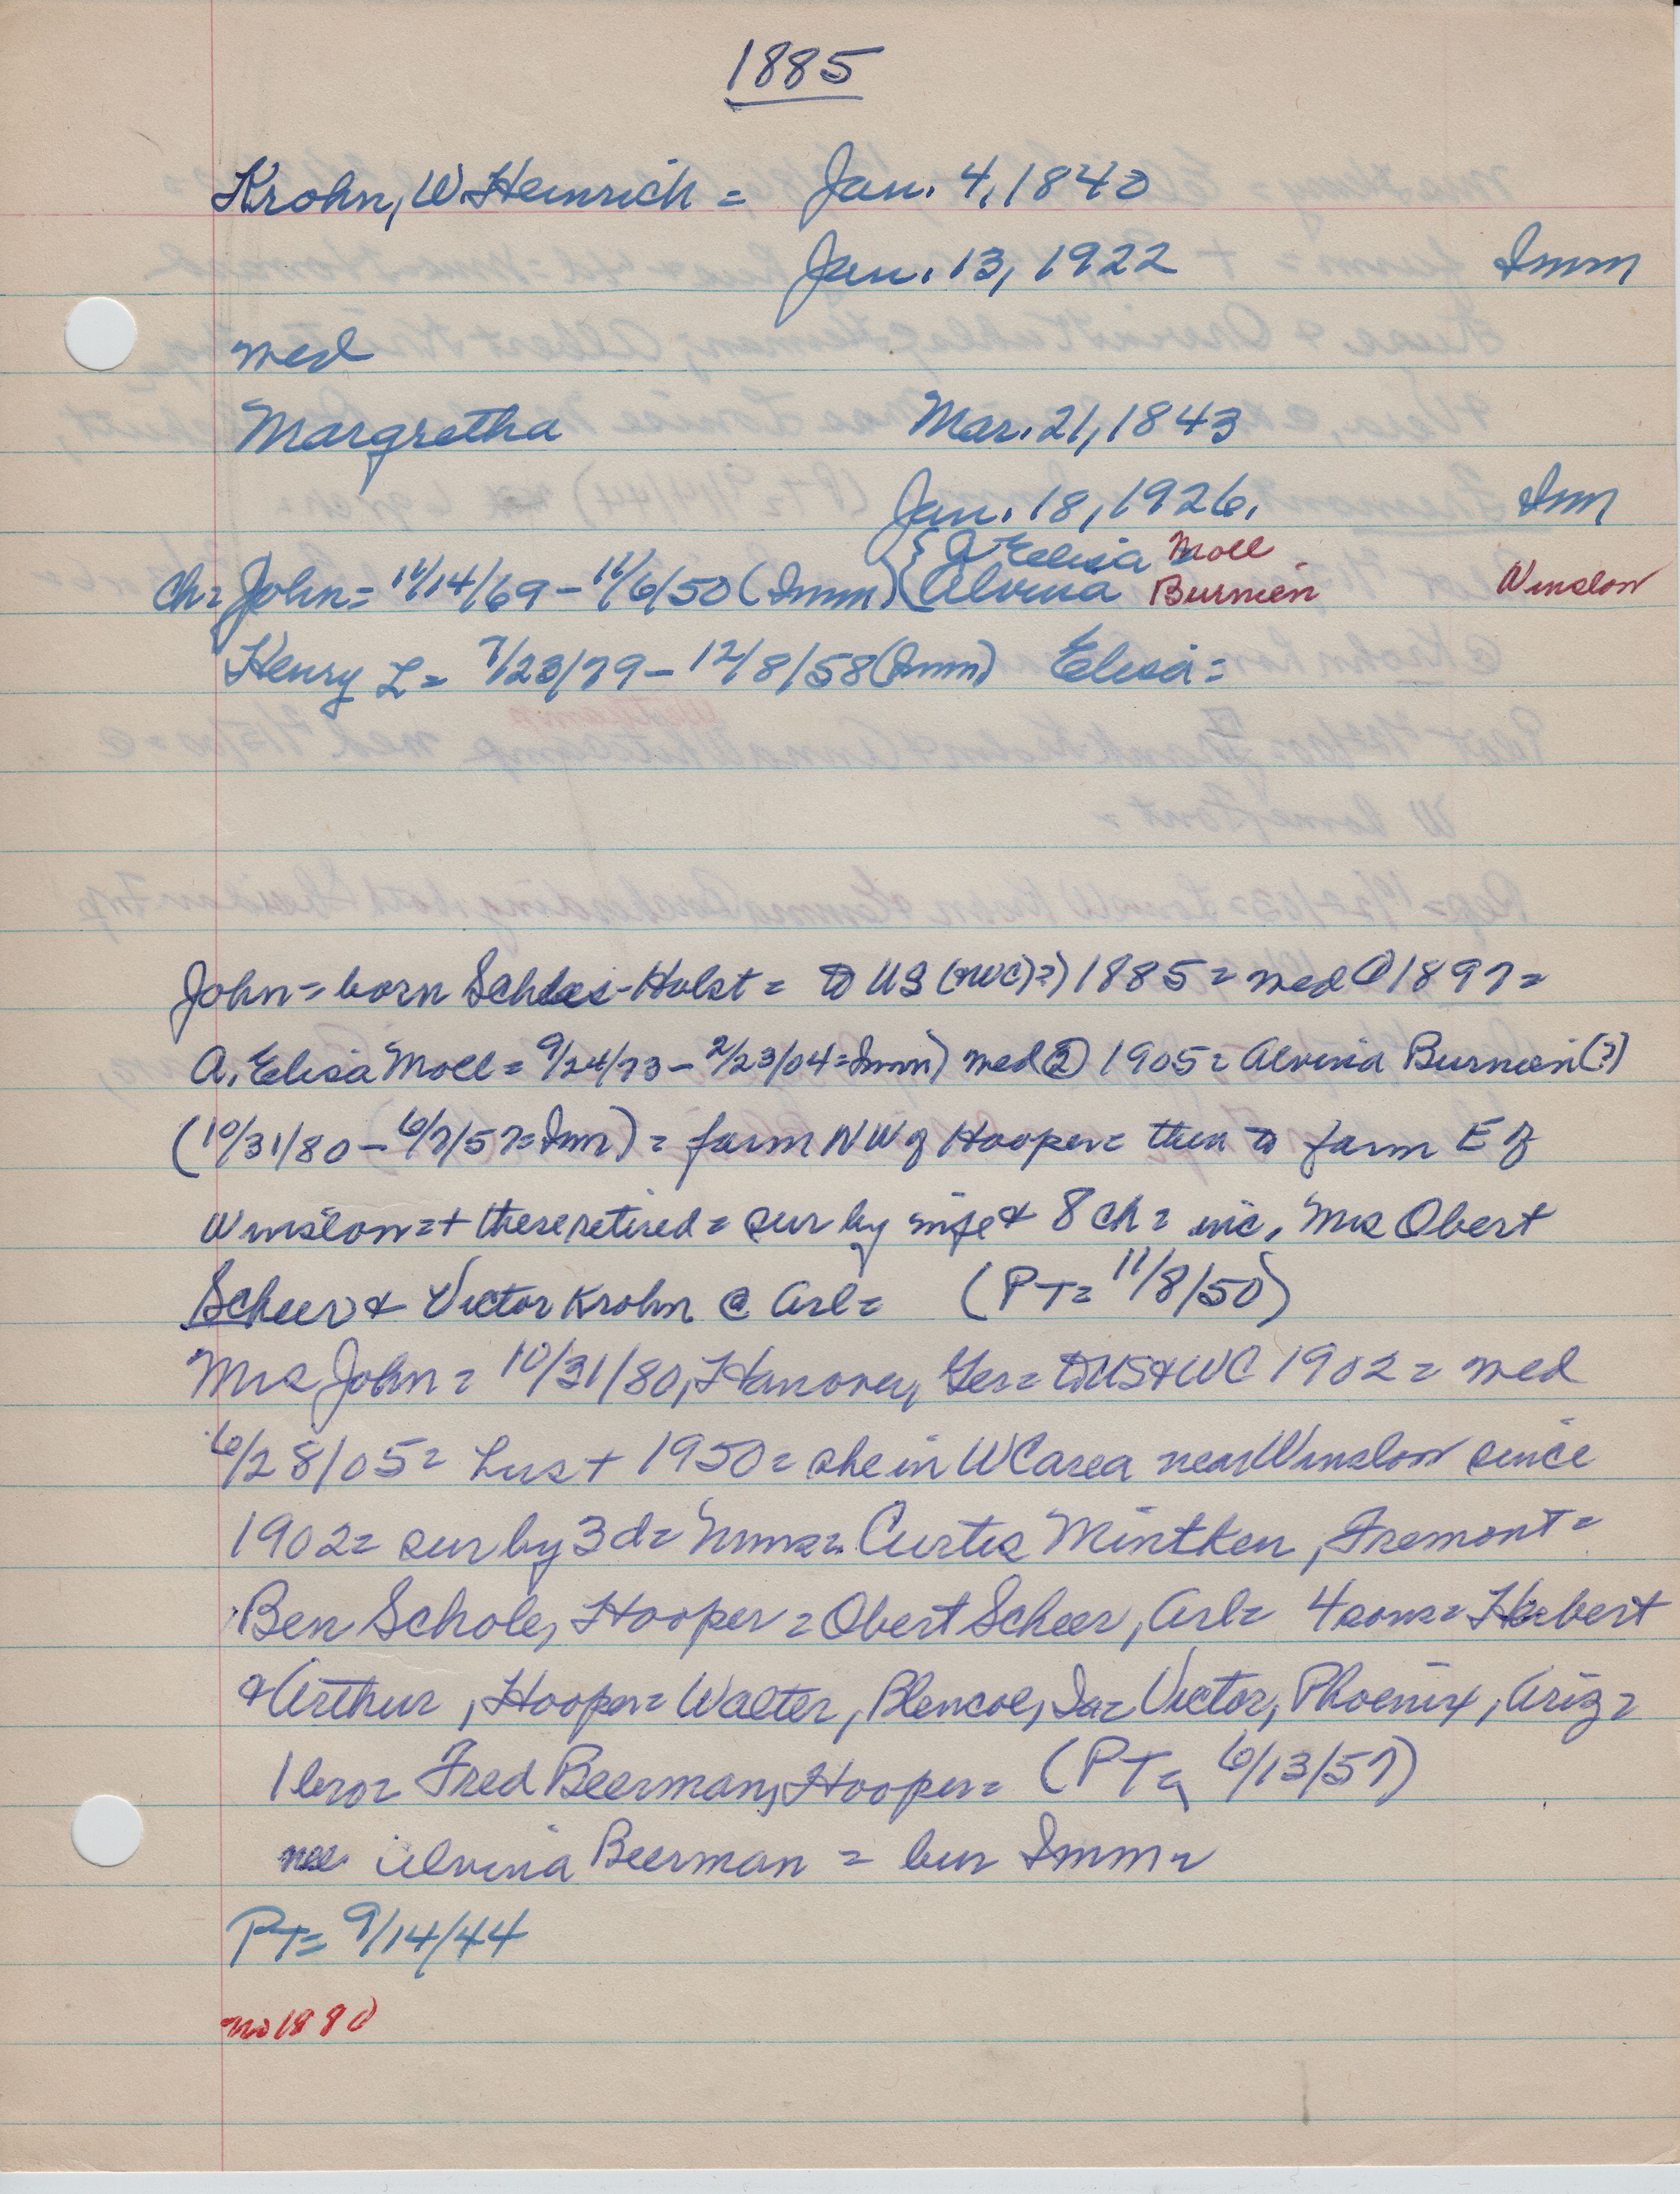 1885
Krohn, W Heinrich = Jan. 4, 1840
Jan. 13, 1922 Imm
med
Margretha Mar. 21, 1843
Jan. 18, 1926. Imm
{ A Elisa Moll
Ch= John = 11/14/69 - 11/6/50 (Imm) { Alvina Burmien Winslow
Henry L = 7/23/79 - 12/8/58 (Imm) Elisa =
John = born Schles-Holst = to US (WC?) 1885 = med ① 1897 =
A. Elisa Moll = 9/24/73 - 2/23/04 = Imm) med ② 1905 = Alvina Burmien (?)
(10/31/80 - 6/7/57 = Imm) = farm NW of Hooper = then to farm E of
Winslow = + there retired = sur by wife & 8 ch = inc, Mrs Obert
Scheer & Victor Krohn @ Arl = (PT = 11/8/50)
Mrs John = 10/31/80, Hanover, Ger = to US & WC 1902 = med
6/28/05 = Hus + 1950 = she in WC area near Winslow since
1902 = sur by 3 d = Mmes = Curtis Mintken, Fremont =
Ben Schole, Hooper = Obert Scheer, Arl = 4 sons = Herbert
& Arthur, Hooper = Walter, Blencoe, Ia = Victor, Phoenix, Ariz =
1 bro = Fred Beerman, Hooper = (PT = 6/13/57)
nee Alvina Beerman = bur Imm =
PT = 9/14/44
no 1880